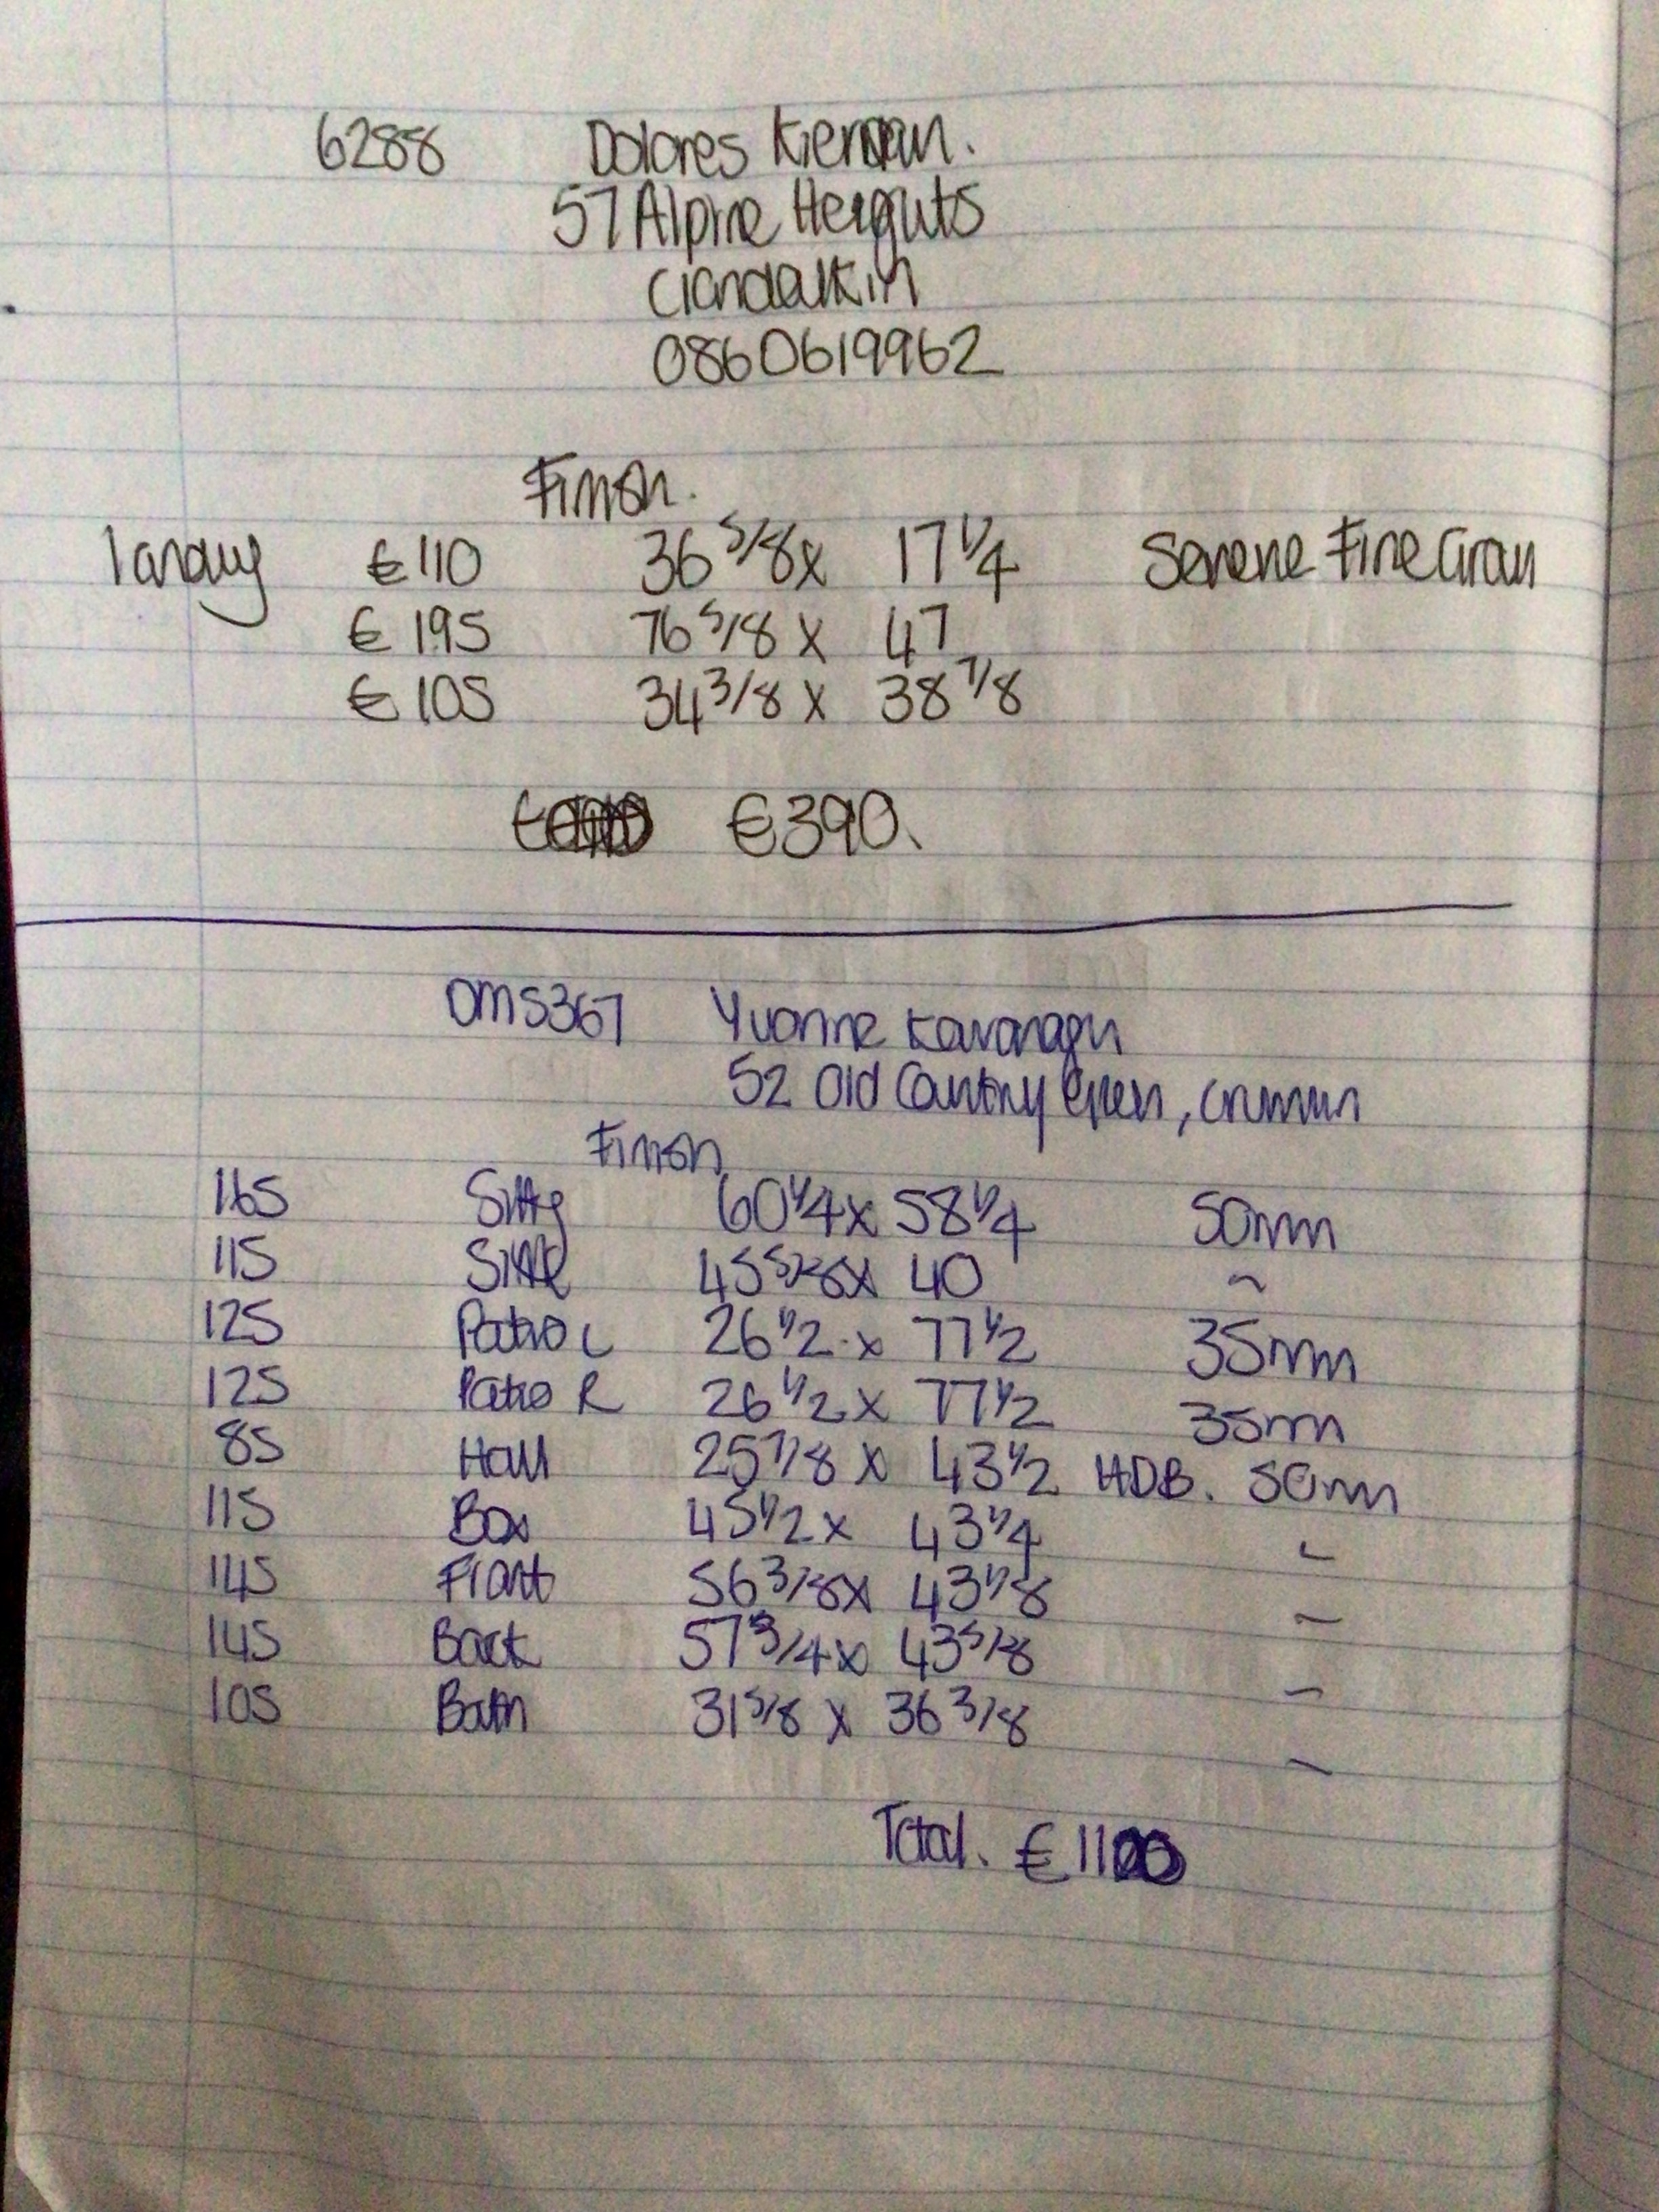 6288 Dolores Kiernan.
57 Alpine Heights
Clondalkin
0860619962
Finish.
€110 36 5/8 x 17 1/4 Serene Fine Grain
€195 76 5/8 x 47
€105 34 3/8 x 38 7/8
€390.
OM5367 Yvonne Kavanagh
52 Old Country Green, Crumlin
Finish
165 Sitting 60 1/4 x 58 1/4 50mm
115 45 5/8 x 40 ~
125 Patio L 26 1/2 x 77 1/2 35mm
125 Patio R 26 1/2 x 77 1/2 35mm
85 Hall 25 7/8 x 43 1/2 HDB. 50mm
115 Box 45 1/2 x 43 1/4
145 Front 56 3/8 x 43 1/8 ~
145 Back 57 3/4 x 43 5/8 ~
105 Bath 31 5/8 x 36 3/8 ~
Total. €1100